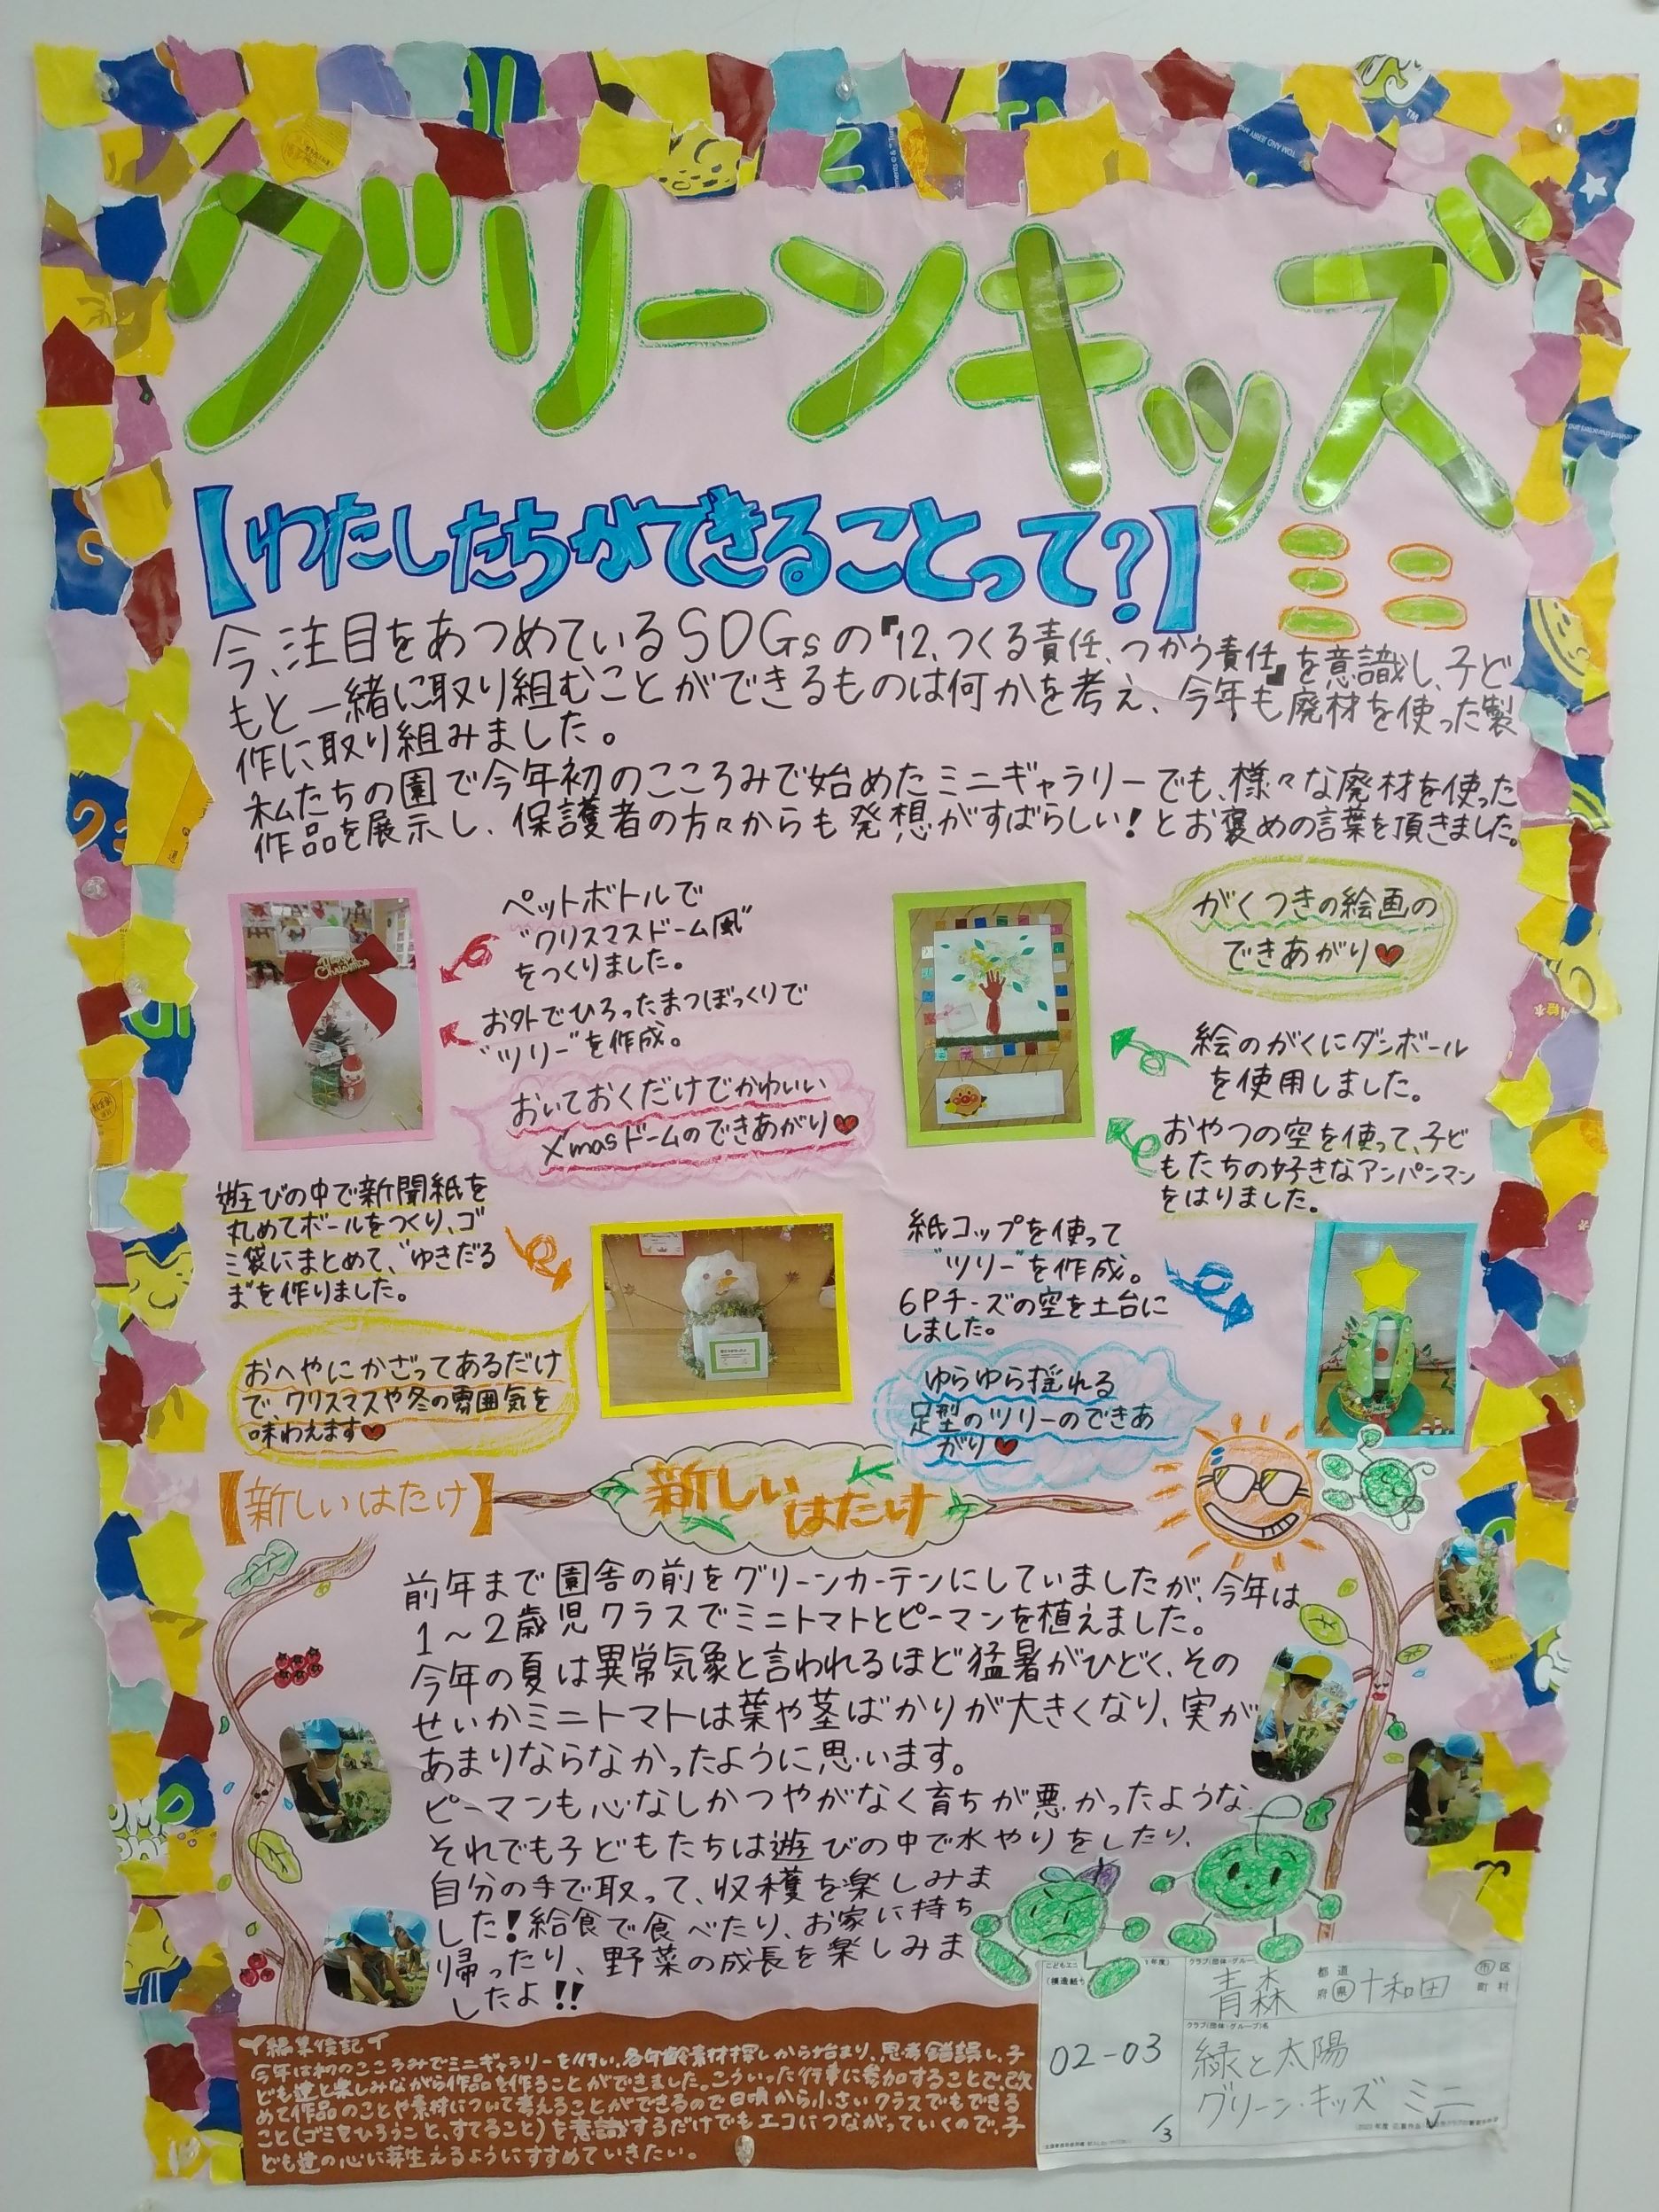 グリーンキッズ
ミニ
【わたしたちができることって?】
今、注目をあつめているSDGsの『12、つくる責任、つかう責任』を意識し、子ど
もと一緒に取り組むことができるものは何かを考え、今年も廃材を使った製
作に取り組みました。
私たちの園で今年初のこころみで始めたミニギャラリーでも、様々な廃材を使った
作品を展示し、保護者の方々からも発想がすばらしい!とお褒めの言葉を頂きました。
ペットボトルで
"クリスマスドーム風"
をつくりました。
お外でひろったまつぼっくりで
"ツリー"を作成。
おいておくだけでかわいい
X'masドームのできあがり
がくつきの絵画の
できあがり
絵のがくにダンボール
を使用しました。
おやつの空を使って、子ど
もたちの好きなアンパンマン
をはりました。
遊びの中で新聞紙を
丸めてボールをつくり、ゴ
ミ袋にまとめて、"ゆきだる
ま"を作りました。
おへやにかざってあるだけ
で、クリスマスや冬の雰囲気を
味わえます
紙コップを使って
"ツリー"を作成。
6Pチーズの空を土台に
しました。
ゆらゆら揺れる
足型のツリーのできあ
がり
【新しいはたけ】
新しい
はたけ
前年まで園舎の前をグリーンカーテンにしていましたが、今年は
1～2歳児クラスでミニトマトとピーマンを植えました。
今年の夏は異常気象と言われるほど猛暑がひどく、その
せいかミニトマトは葉や茎ばかりが大きくなり、実が
あまりならなかったように思います。
ピーマンも心なしかつやがなく育ちが悪かったような
それでも子どもたちは遊びの中で水やりをしたり、
自分の手で取って、収穫を楽しみま
した!給食で食べたり、お家に持ち
帰ったり、野菜の成長を楽しみま
したよ!!
編集後記
今年は初のこころみでミニギャラリーを行い、各年齢素材探しから始まり、思考錯誤し、子
ども達と楽しみながら作品を作ることができました。こういった行事に参加することで、改
めて作品のことや素材について考えることができるので日頃から小さいクラスでもできる
こと(ゴミをひろうこと、すてること)を意識するだけでもエコにつながっていくので、子
ども達の心に芽生えるようにすすめていきたい。
青森 都道府県 十和田 市区町村
02-03
緑と太陽
グリーン・キッズ ミニ
1/3
Merry Christmas
TOM AND JERRY and